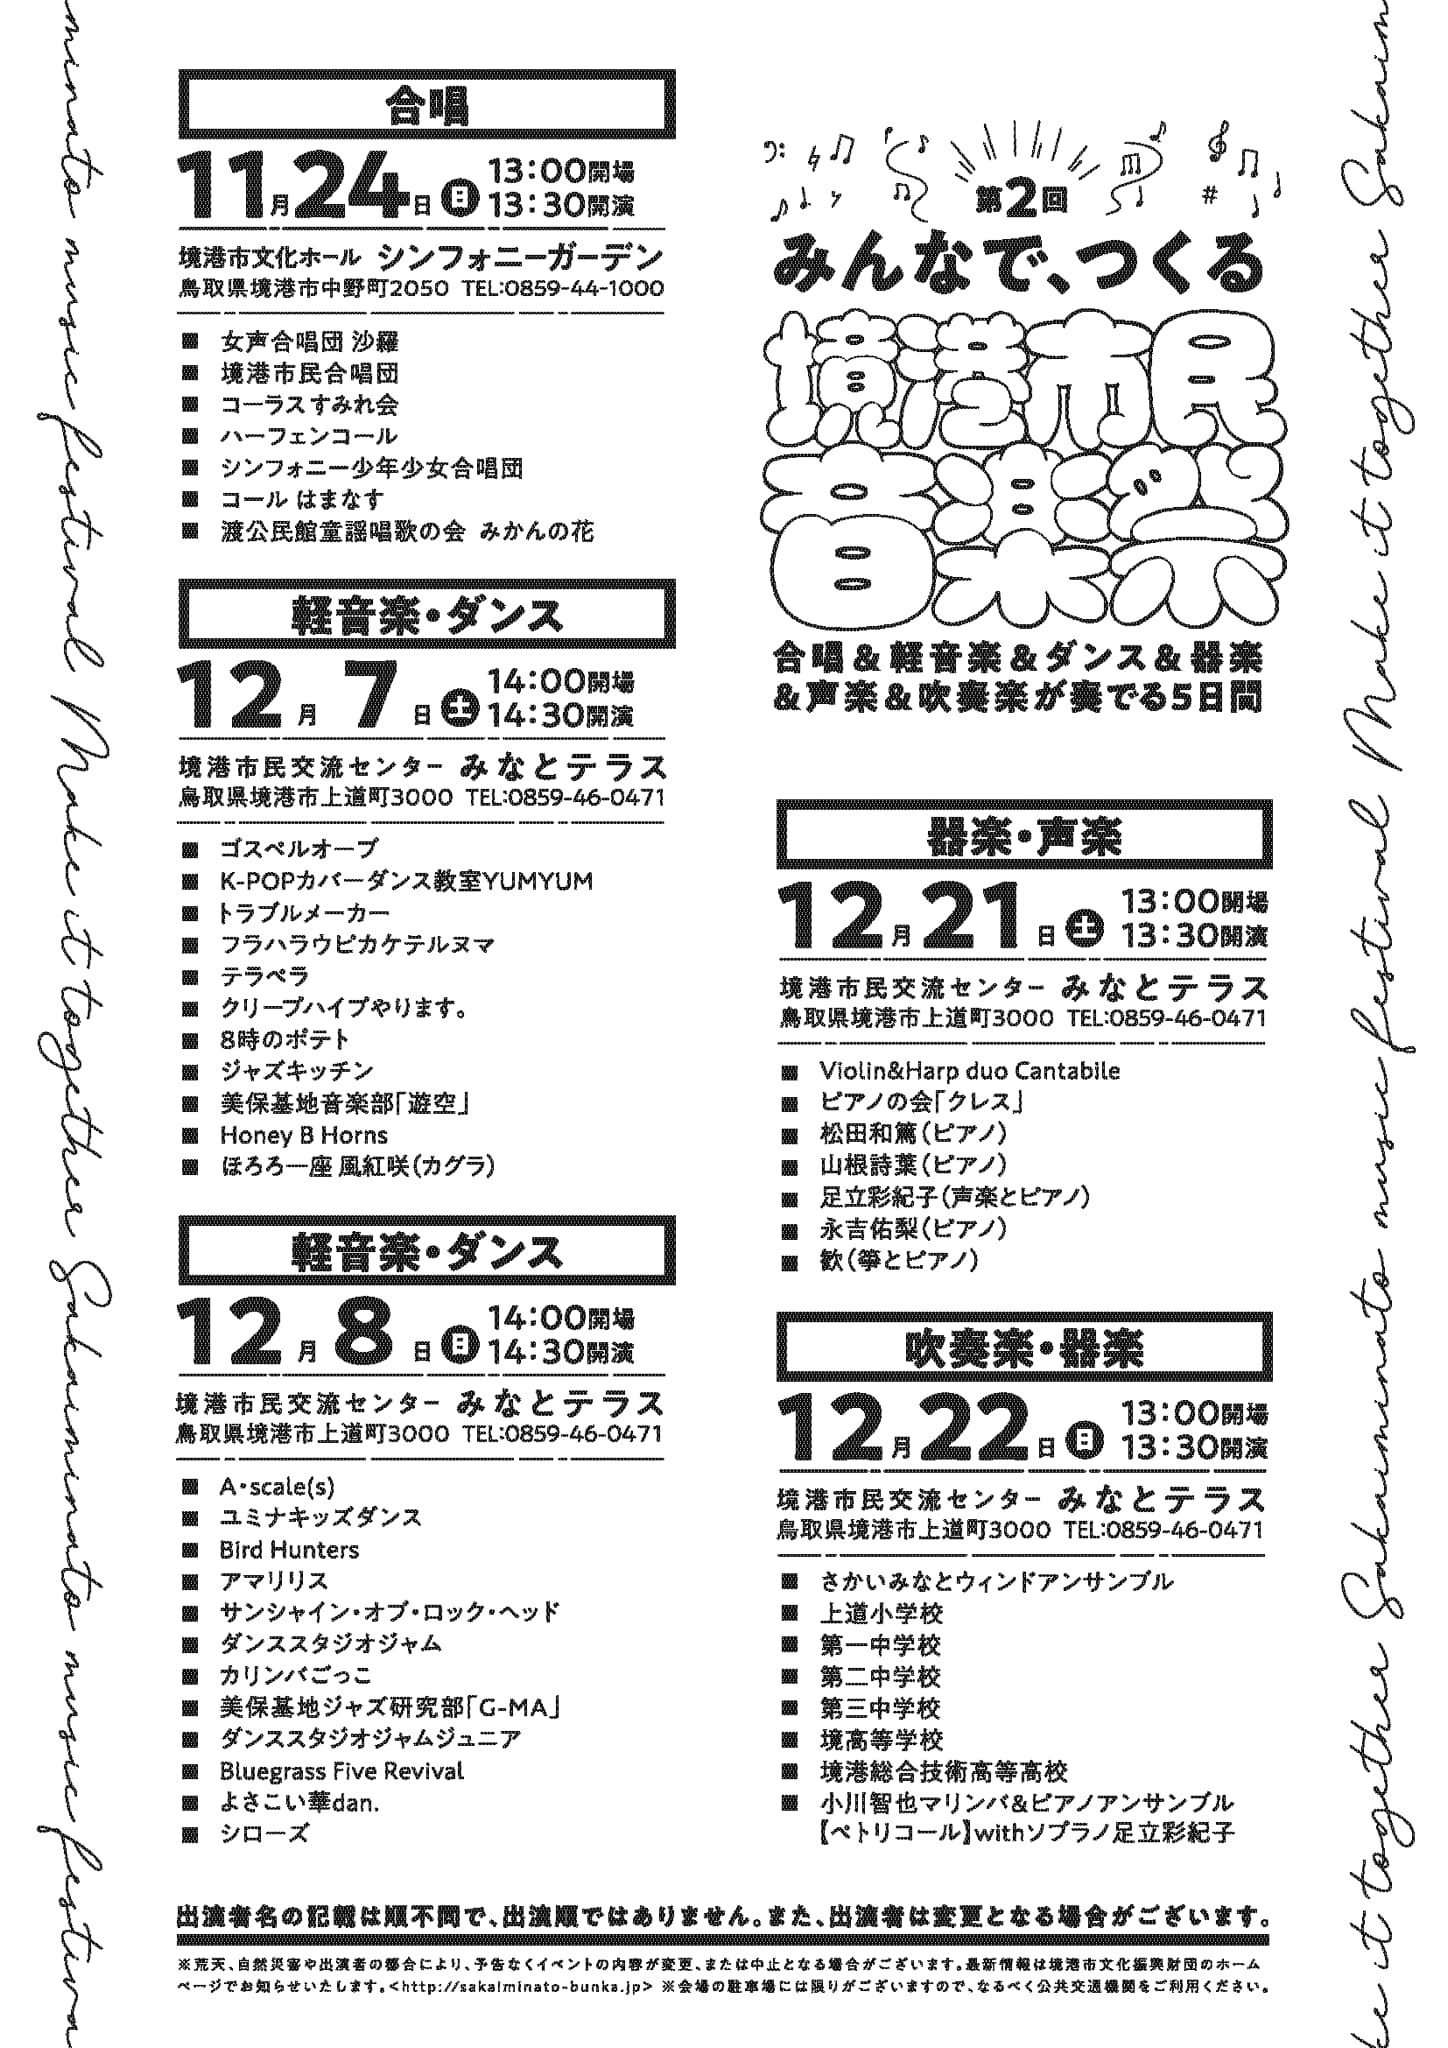 合唱
11月24日 日 13:00開場
13:30開演
境港市文化ホール シンフォニーガーデン
鳥取県境港市中野町2050 TEL:0859-44-1000
■ 女声合唱団 沙羅
■ 境港市民合唱団
■ コーラスすみれ会
■ ハーフェンコール
■ シンフォニー少年少女合唱団
■ コール はまなす
■ 渡公民館童謡唱歌の会 みかんの花
軽音楽・ダンス
12月 7日 土 14:00開場
14:30開演
境港市民交流センター みなとテラス
鳥取県境港市上道町3000 TEL:0859-46-0471
■ ゴスペルオーブ
■ K-POPカバーダンス教室YUMYUM
■ トラブルメーカー
■ フラハラウピカケテルヌマ
■ テラペラ
■ クリープハイプやります。
■ 8時のポテト
■ ジャズキッチン
■ 美保基地音楽部「遊空」
■ Honey B Horns
■ ほろろ一座 風紅咲（カグラ）
軽音楽・ダンス
12月 8日 日 14:00開場
14:30開演
境港市民交流センター みなとテラス
鳥取県境港市上道町3000 TEL:0859-46-0471
■ A・scale(s)
■ ユミナキッズダンス
■ Bird Hunters
■ アマリリス
■ サンシャイン・オブ・ロック・ヘッド
■ ダンススタジオジャム
■ カリンバごっこ
■ 美保基地ジャズ研究部「G-MA」
■ ダンススタジオジャムジュニア
■ Bluegrass Five Revival
■ よさこい華dan.
■ シローズ
第2回
みんなで、つくる
境港市民
音楽祭
合唱＆軽音楽＆ダンス＆器楽
＆声楽＆吹奏楽が奏でる5日間
器楽・声楽
12月21日 土 13:00開場
13:30開演
境港市民交流センター みなとテラス
鳥取県境港市上道町3000 TEL:0859-46-0471
■ Violin&Harp duo Cantabile
■ ピアノの会「クレス」
■ 松田和篤（ピアノ）
■ 山根詩葉（ピアノ）
■ 足立彩紀子（声楽とピアノ）
■ 永吉佑梨（ピアノ）
■ 歓（箏とピアノ）
吹奏楽・器楽
12月22日 日 13:00開場
13:30開演
境港市民交流センター みなとテラス
鳥取県境港市上道町3000 TEL:0859-46-0471
■ さかいみなとウィンドアンサンブル
■ 上道小学校
■ 第一中学校
■ 第二中学校
■ 第三中学校
■ 境高等学校
■ 境港総合技術高等高校
■ 小川智也マリンバ＆ピアノアンサンブル
【ペトリコール】withソプラノ足立彩紀子
出演者名の記載は順不同で、出演順ではありません。また、出演者は変更となる場合がございます。
※荒天、自然災害や出演者の都合により、予告なくイベントの内容が変更、または中止となる場合がございます。最新情報は境港市文化振興財団のホーム
ページでお知らせいたします。<http://sakaiminato-bunka.jp> ※会場の駐車場には限りがございますので、なるべく公共交通機関をご利用ください。
minato music festival Make it together Sakaiminato music festiva
Sakaim
ke it together Sakaiminato music festival Make it together Sakaim